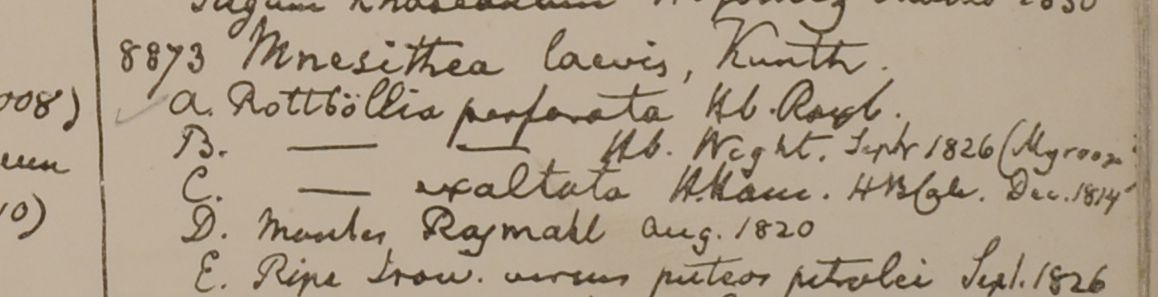 1830
8873 Mnesithea laevis, Kunth.
008) a. Rottböllia perforata Hb. Roxb.
B. — — Hb. Wight. Septr 1826 (
C. — exaltata H.Ham. HBC Dec. 1814
10) D. Montes Rajmahl Aug. 1820
E. Ripa Irow. versus puteos petrolei Sept. 1826